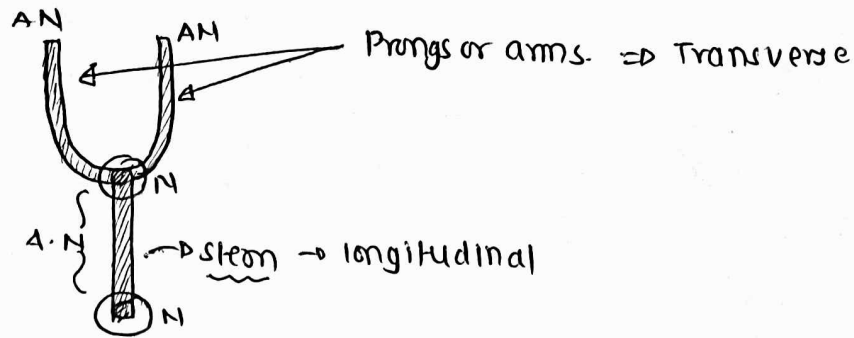 AN
AN
Prongs or arms. ⇒ Transverse
N
A.N
→ stem → longitudinal
N